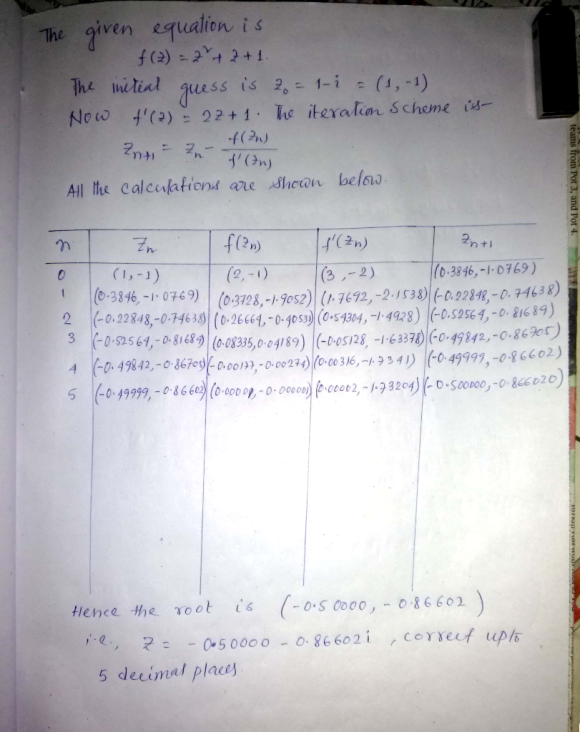 The given equation is
f(z) = z² + z + 1.
The initial guess is z₀ = 1-i = (1, -1)
Now f'(z) = 2z + 1. The iteration scheme is-
zₙ₊₁ = zₙ - f(zₙ) / f'(zₙ)
All the calculations are shown below.
n zₙ f(zₙ) f'(zₙ) zₙ₊₁
0 (1, -1) (2, -1) (3, -2) (0.3846, -1.0769)
1 (0.3846, -1.0769) (0.3728, -1.9052) (1.7692, -2.1538) (-0.22848, -0.74638)
2 (-0.22848, -0.74638) (0.26664, -0.40531) (0.54304, -1.4928) (-0.52564, -0.81689)
3 (-0.52564, -0.81689) (0.08335, 0.04189) (-0.05128, -1.63378) (-0.49842, -0.86705)
4 (-0.49842, -0.86705) (-0.00177, -0.00274) (0.00316, -1.7341) (-0.49999, -0.86602)
5 (-0.49999, -0.86602) (0.00001, -0.000001) (0.00002, -1.73204) (-0.500000, -0.866020)
Hence the root is (-0.50000, -0.86602)
i.e., z = -0.50000 - 0.86602i, correct upto
5 decimal places.
teams from Pot 3, and Pot 4.